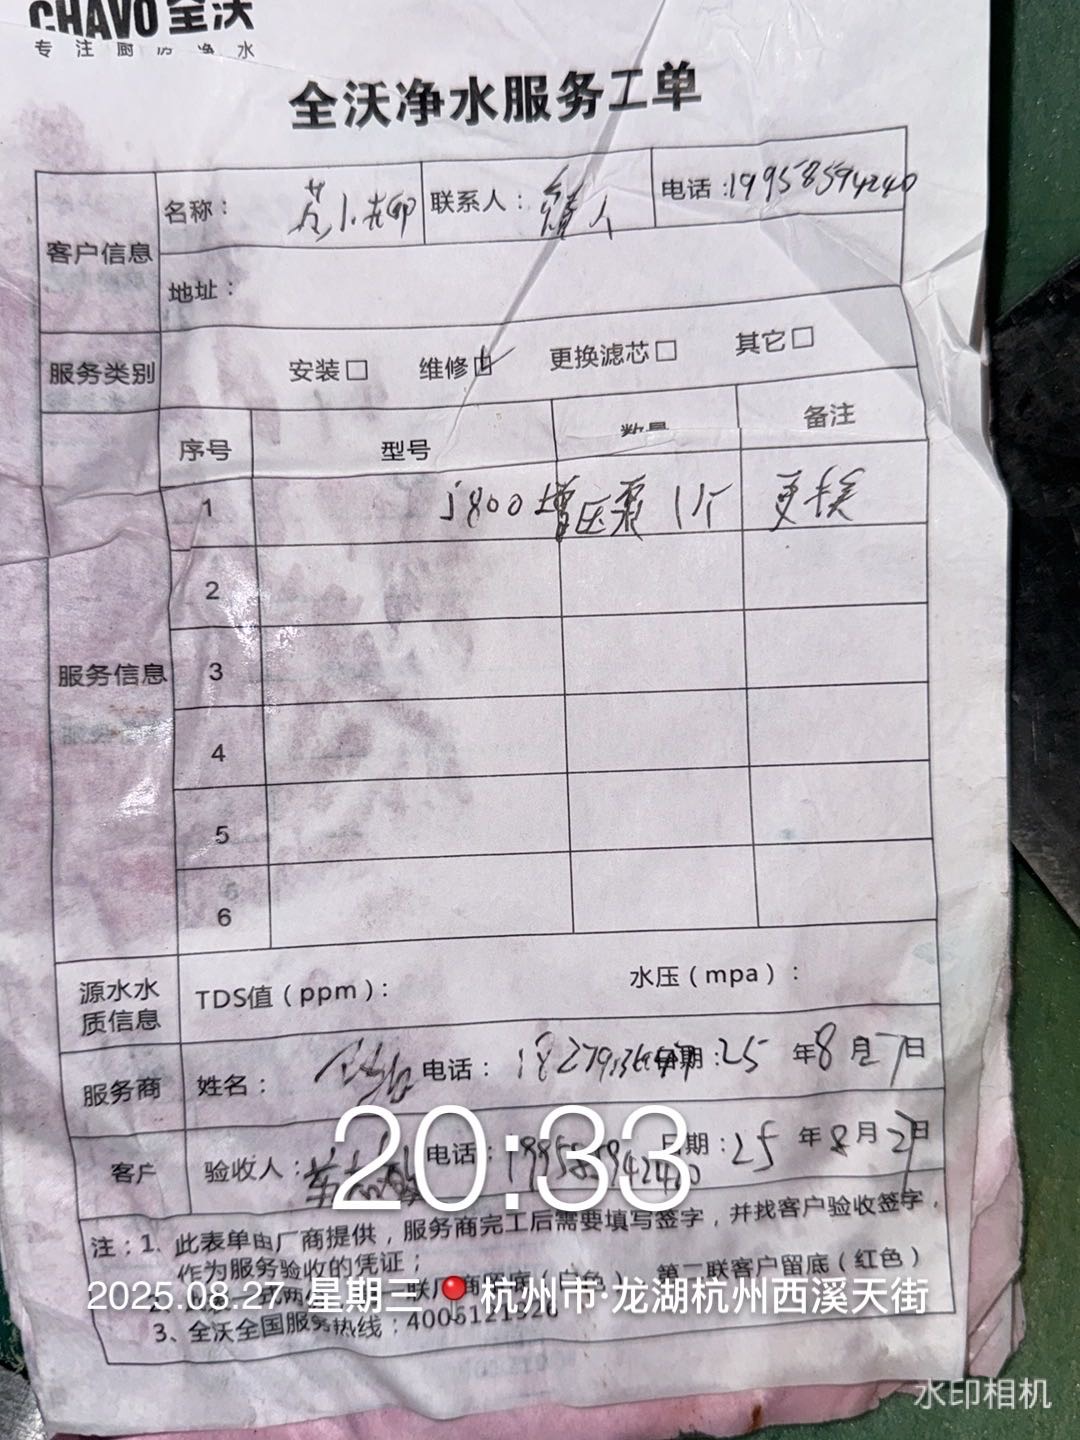 CHAVO 全沃
专注厨房净水
全沃净水服务工单
客户信息 名称： 联系人： 电话：19958594240
地址：
服务类别 安装□ 维修☑ 更换滤芯□ 其它□
序号 型号 数量 备注
服务信息
1 J800增压泵 1个 更换
2
3
4
5
6
源水水质信息 TDS值（ppm）： 水压（mpa）：
服务商 姓名： 电话： 日期：25年8月27日
客户 验收人： 电话：19958594240 日期：25年8月27日
注：1、此表单由厂商提供，服务商完工后需要填写签字，并找客户验收签字，
作为服务验收的凭证；
联厂商留底（白色），第二联客户留底（红色）
3、全沃全国服务热线：4006121926
20:33
2025.08.27 星期三 杭州市·龙湖杭州西溪天街
水印相机